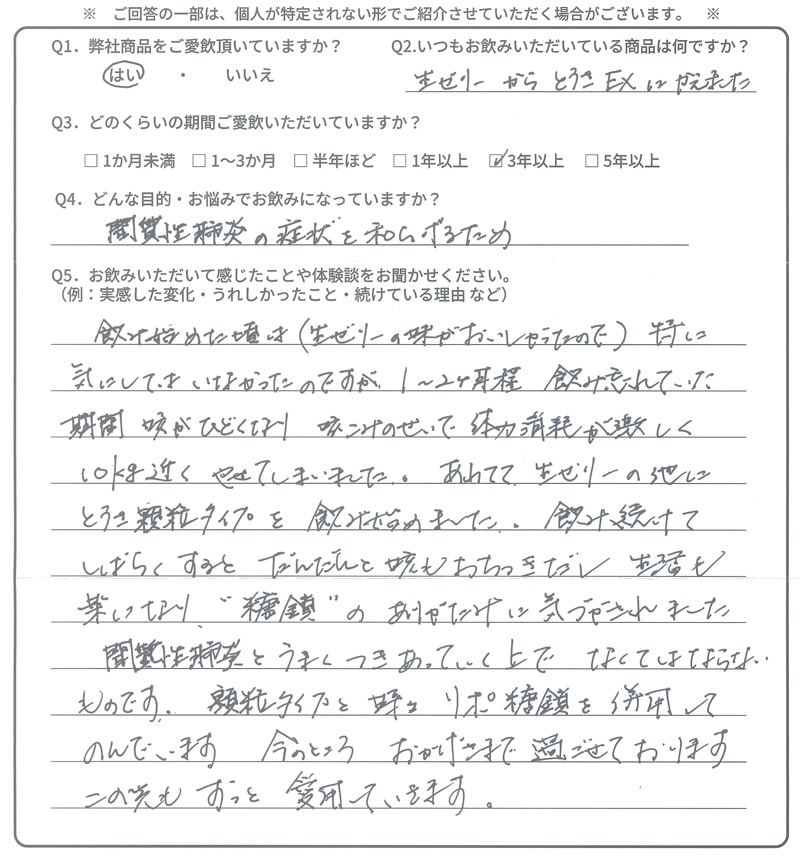 ※ ご回答の一部は、個人が特定されない形でご紹介させていただく場合がございます。 ※
Q1．弊社商品をご愛飲頂いていますか？ Q2.いつもお飲みいただいている商品は何ですか？
はい ・ いいえ 生ゼリーから とうき EXに かえました
Q3．どのくらいの期間ご愛飲いただいていますか？
□ 1か月未満 □ 1〜3か月 □ 半年ほど □ 1年以上 ☑ 3年以上 □ 5年以上
Q4．どんな目的・お悩みでお飲みになっていますか？
間質性肺炎の症状を和らげるため
Q5．お飲みいただいて感じたことや体験談をお聞かせください。
（例：実感した変化・うれしかったこと・続けている理由 など）
飲み始めた頃は（生ゼリーの味がおいしかったので）特に
気にしては いなかったのですが 1〜2ヶ月程 飲み忘れていた
期間 咳がひどくなり 咳こみのせいで 体力消耗が激しく
10kg近く やせてしまいました。 あわてて 生ゼリーの他に
とうき顆粒タイプを 飲み始めました。 飲み続けて
しばらく すると だんだんと 咳もおちつきだし 生活も
楽になり “糖鎖”の ありがたみに気づかされました
間質性肺炎と うまく つきあっていく上で なくてはならない
ものです。 顆粒タイプと リポ糖鎖を 併用して
のんでいます 今のところ おかげさまで 過ごせております
この先も ずっと 愛用していきます。